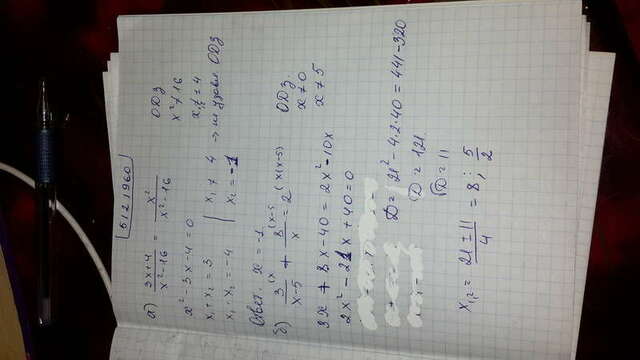 5121960
а) (3x+4)/(x²-16) = x²/(x²-16)
ОДЗ
x² ≠ 16
x²-3x-4=0
x₁+x₂=3
x₁·x₂=-4
x₁ ≠ 4 → не удовл ОДЗ
x₂=-1
Ответ. x=-1
б) 3/(x-5) + 8/x = 2 (x(x-5)
ОДЗ
x≠0
x≠5
3x+8x-40=2x²-10x
2x²-21x+40=0
D=21²-4·2·40=441-320
D=121
√D=11
x₁,₂ = (21±11)/4 = 8; 5/2